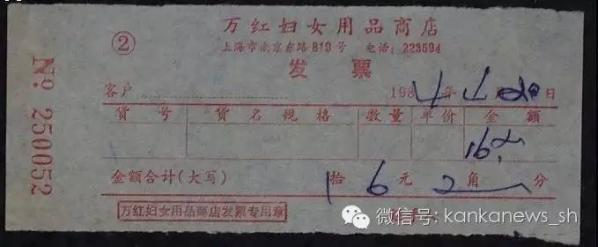 万红妇女用品商店
② 上海市南京东路819号 电话：223594
发票
№ 250052
客户 1984年1月20日
货号 货名规格 数量 单价 金额
16.2
金额合计(大写) 1拾6元2角 分
万红妇女用品商店发票专用章
微信号: kankanews_sh